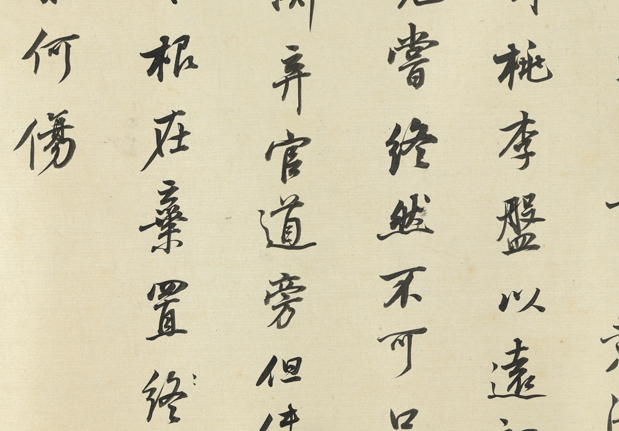 桃李盤以遠
嘗終然不可口
弃官道旁但
根在棄置終
何傷